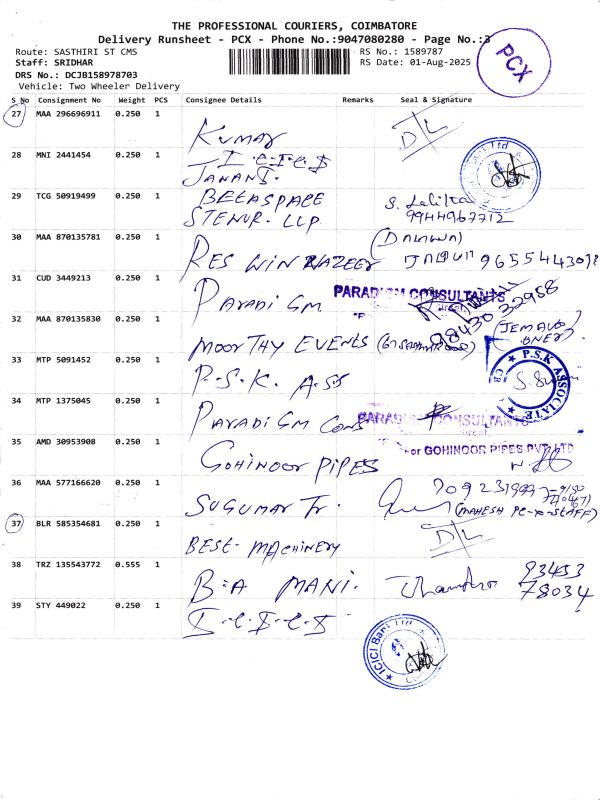 THE PROFESSIONAL COURIERS, COIMBATORE
Delivery Runsheet - PCX - Phone No.:9047080280 - Page No.:3
Route: SASTHIRI ST CMS
RS No.: 1589787
Staff: SRIDHAR
RS Date: 01-Aug-2025
DRS No.: DCJB158978703
Vehicle: Two Wheeler Delivery
PCX
S No Consignment No Weight PCS Consignee Details Remarks Seal & Signature
27 MAA 296696911 0.250 1 Kumar D/L
28 MNI 2441454 0.250 1 I.C.I.C.I
JANANI. ICICI Bank Ltd
29 TCG 50919499 0.250 1 BETASPACE
STENUR. LLP S. Lalitha
9944967712
30 MAA 870135781 0.250 1 RES WIN NAZEER
31 CUD 3449213 0.250 1 Paradi Gm PARADIGM CONSULTANTS
9843032958
32 MAA 870135830 0.250 1 MOORTHY EVENTS
33 MTP 5091452 0.250 1 P.S.K. ASS P.S.K ASSOCIATE
34 MTP 1375045 0.250 1 Paradi Gm Cons PARADIGM CONSULTANTS
35 AMD 30953908 0.250 1 GOHINOOR PIPES For GOHINOOR PIPES PVT LTD
36 MAA 577166620 0.250 1 SUGUMAR Tr.
37 BLR 585354681 0.250 1 BEST MACHINERY D/L
38 TRZ 135543772 0.555 1 B.A MANI. 93453
78034
39 STY 449022 0.250 1 I.C.I.C.I
ICICI Bank Ltd